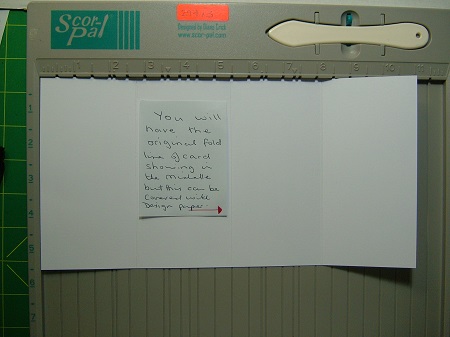 SCOR-PAL
Designed by Diana Crick
www.scor-pal.com
1 2 3 4 5 6 7 8 9 10
You will
have the
original fold
line of card
showing in
the middle
but this can be
covered with
Design paper.